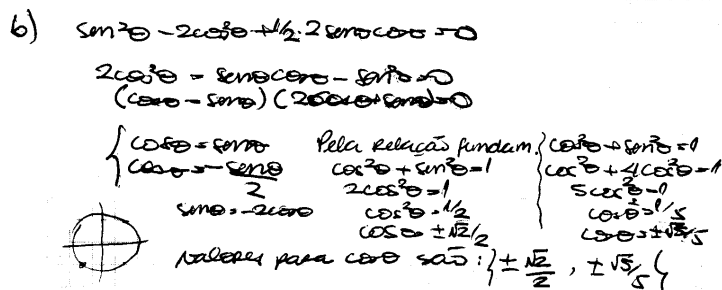 b) sen²θ - 2cos²θ + 1/2 · 2 senθ cosθ = 0
2cos²θ - senθ cosθ - sen²θ = 0
(cosθ - senθ)(2cosθ + senθ) = 0
{ cosθ = senθ
cosθ = - senθ/2
senθ = -2cosθ
Pela relação fundam.
cos²θ + sen²θ = 1
2cos²θ = 1
cos²θ = 1/2
cosθ = ±√2/2
{ cos²θ + sen²θ = 1
cos²θ + 4cos²θ = 1
5cos²θ = 1
cos²θ = 1/5
cosθ = ±√5/5
valores para cosθ são: { ± √2/2 , ± √5/5 }